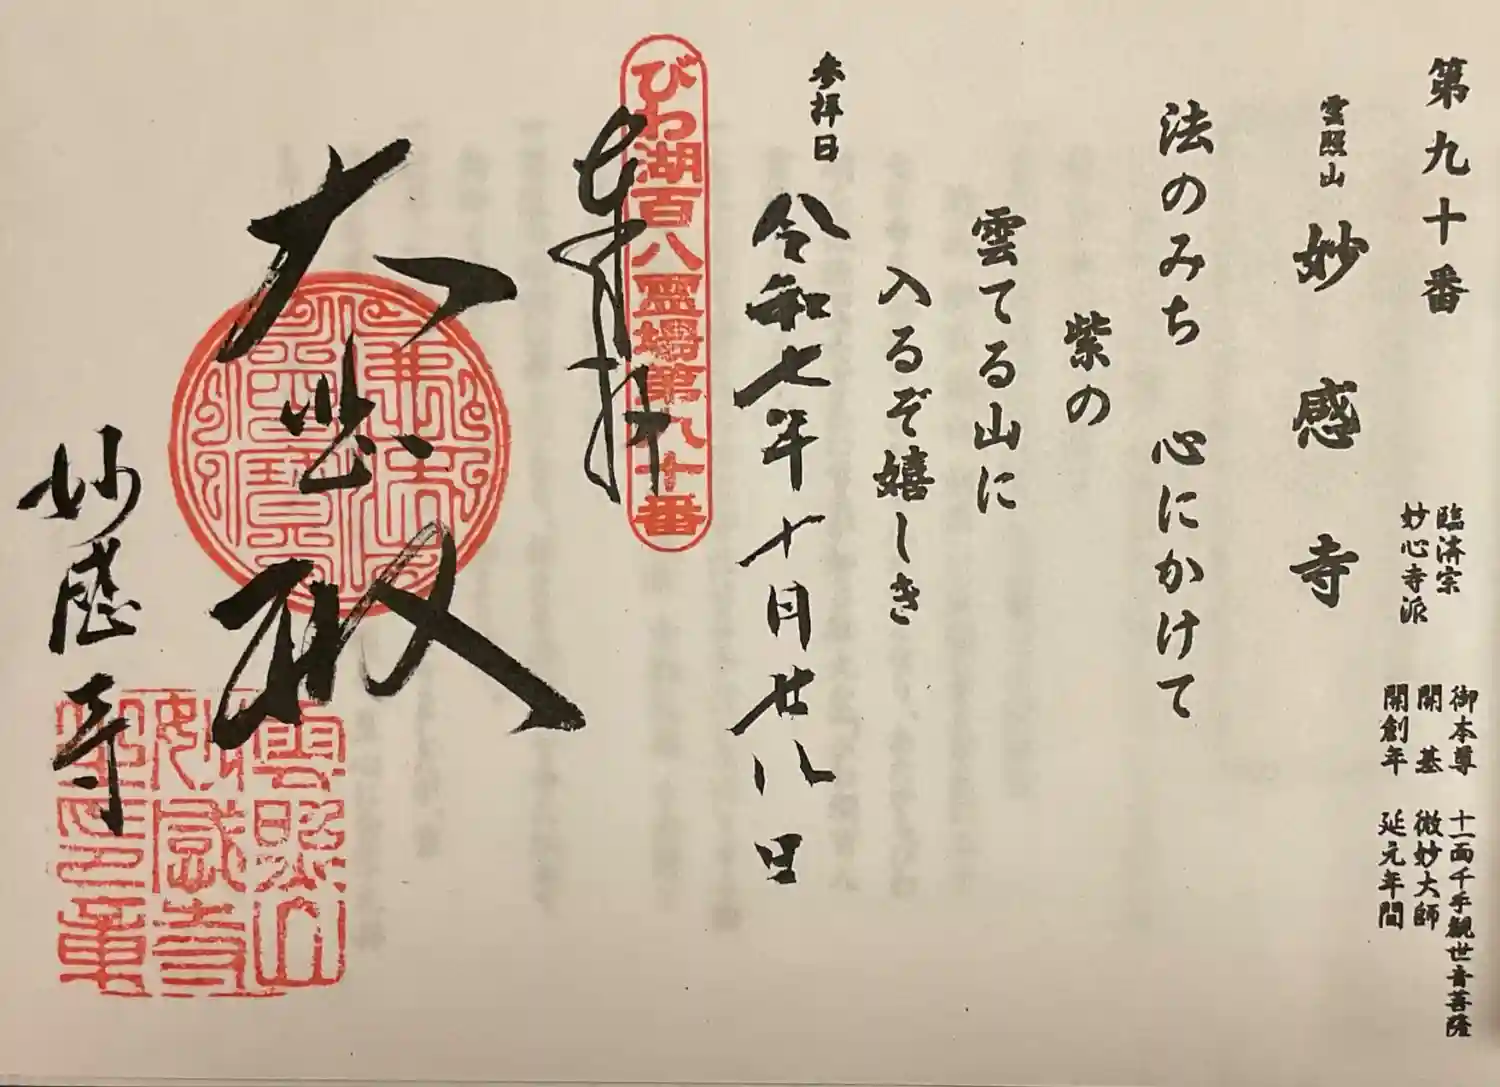 第九十番
臨済宗
妙心寺派
御本尊 十一面千手観世音菩薩
開基 微妙大師
開創年 延元年間
雲照山 妙感寺
法のみち 心にかけて
紫の
雲てる山に
入るぞ嬉しき
参拝日 令和七年十月廿八日
びわ湖百八霊場第九十番
奉拝
大悲殿
妙感寺
雲照山
妙感寺